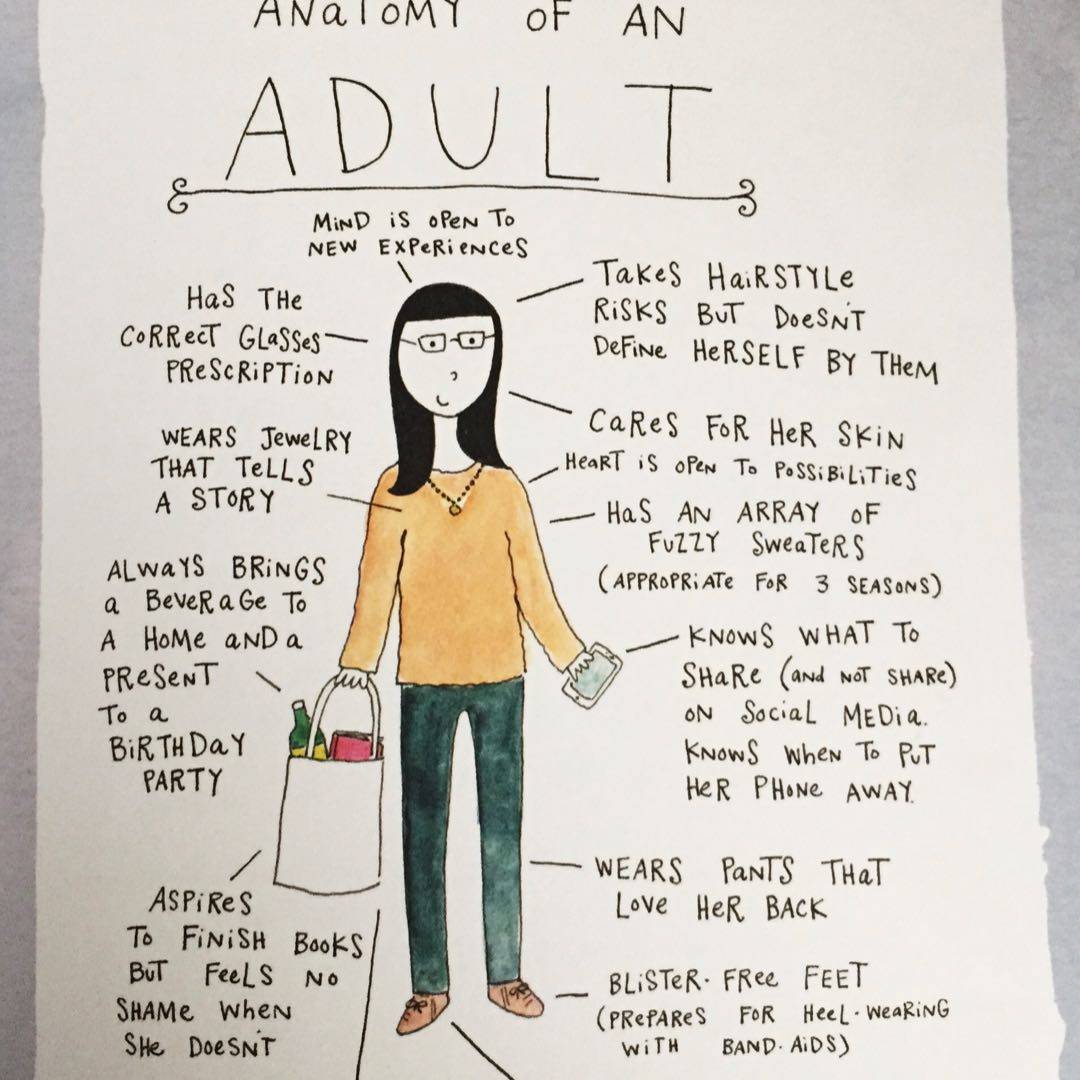 ANATOMY OF AN
ADULT
MIND IS OPEN TO
NEW EXPERIENCES
HAS THE
CORRECT GLASSES
PRESCRIPTION
TAKES HAIRSTYLE
RISKS BUT DOESN'T
DEFINE HERSELF BY THEM
CARES FOR HER SKIN
WEARS JEWELRY
THAT TELLS
A STORY
HEART IS OPEN TO POSSIBILITIES
HAS AN ARRAY OF
FUZZY SWEATERS
(APPROPRIATE FOR 3 SEASONS)
ALWAYS BRINGS
a BEVERAGE TO
A HOME AND a
PRESENT
TO a
BIRTHDAY
PARTY
KNOWS WHAT TO
SHARE (AND NOT SHARE)
ON SOCIAL MEDIA.
KNOWS WHEN TO PUT
HER PHONE AWAY.
ASPIRES
TO FINISH BOOKS
BUT FEELS NO
SHAME WHEN
SHE DOESN'T
WEARS PANTS THAT
LOVE HER BACK
BLISTER-FREE FEET
(PREPARES FOR HEEL-WEARING
WITH BAND-AIDS)